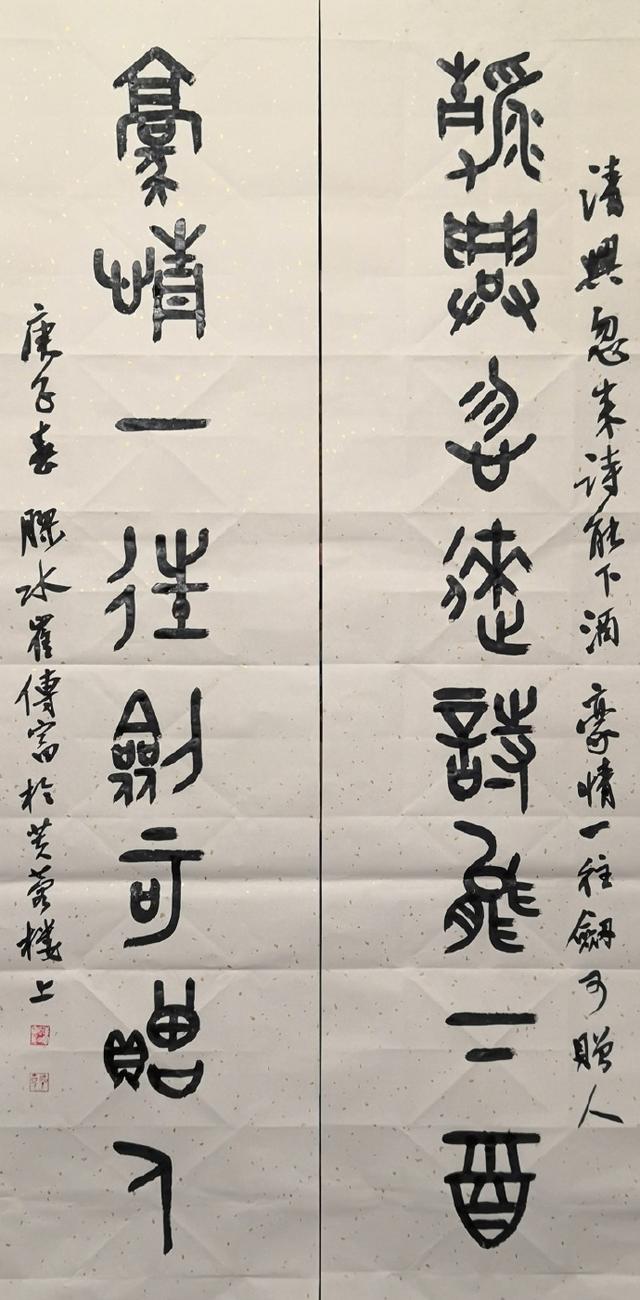 清興忽来詩能下酒 豪情一往劍可贈人
清興忽來詩能下酒
豪情一往劍可贈人
庚子春 膠水崔傳富於芙蓉樓上